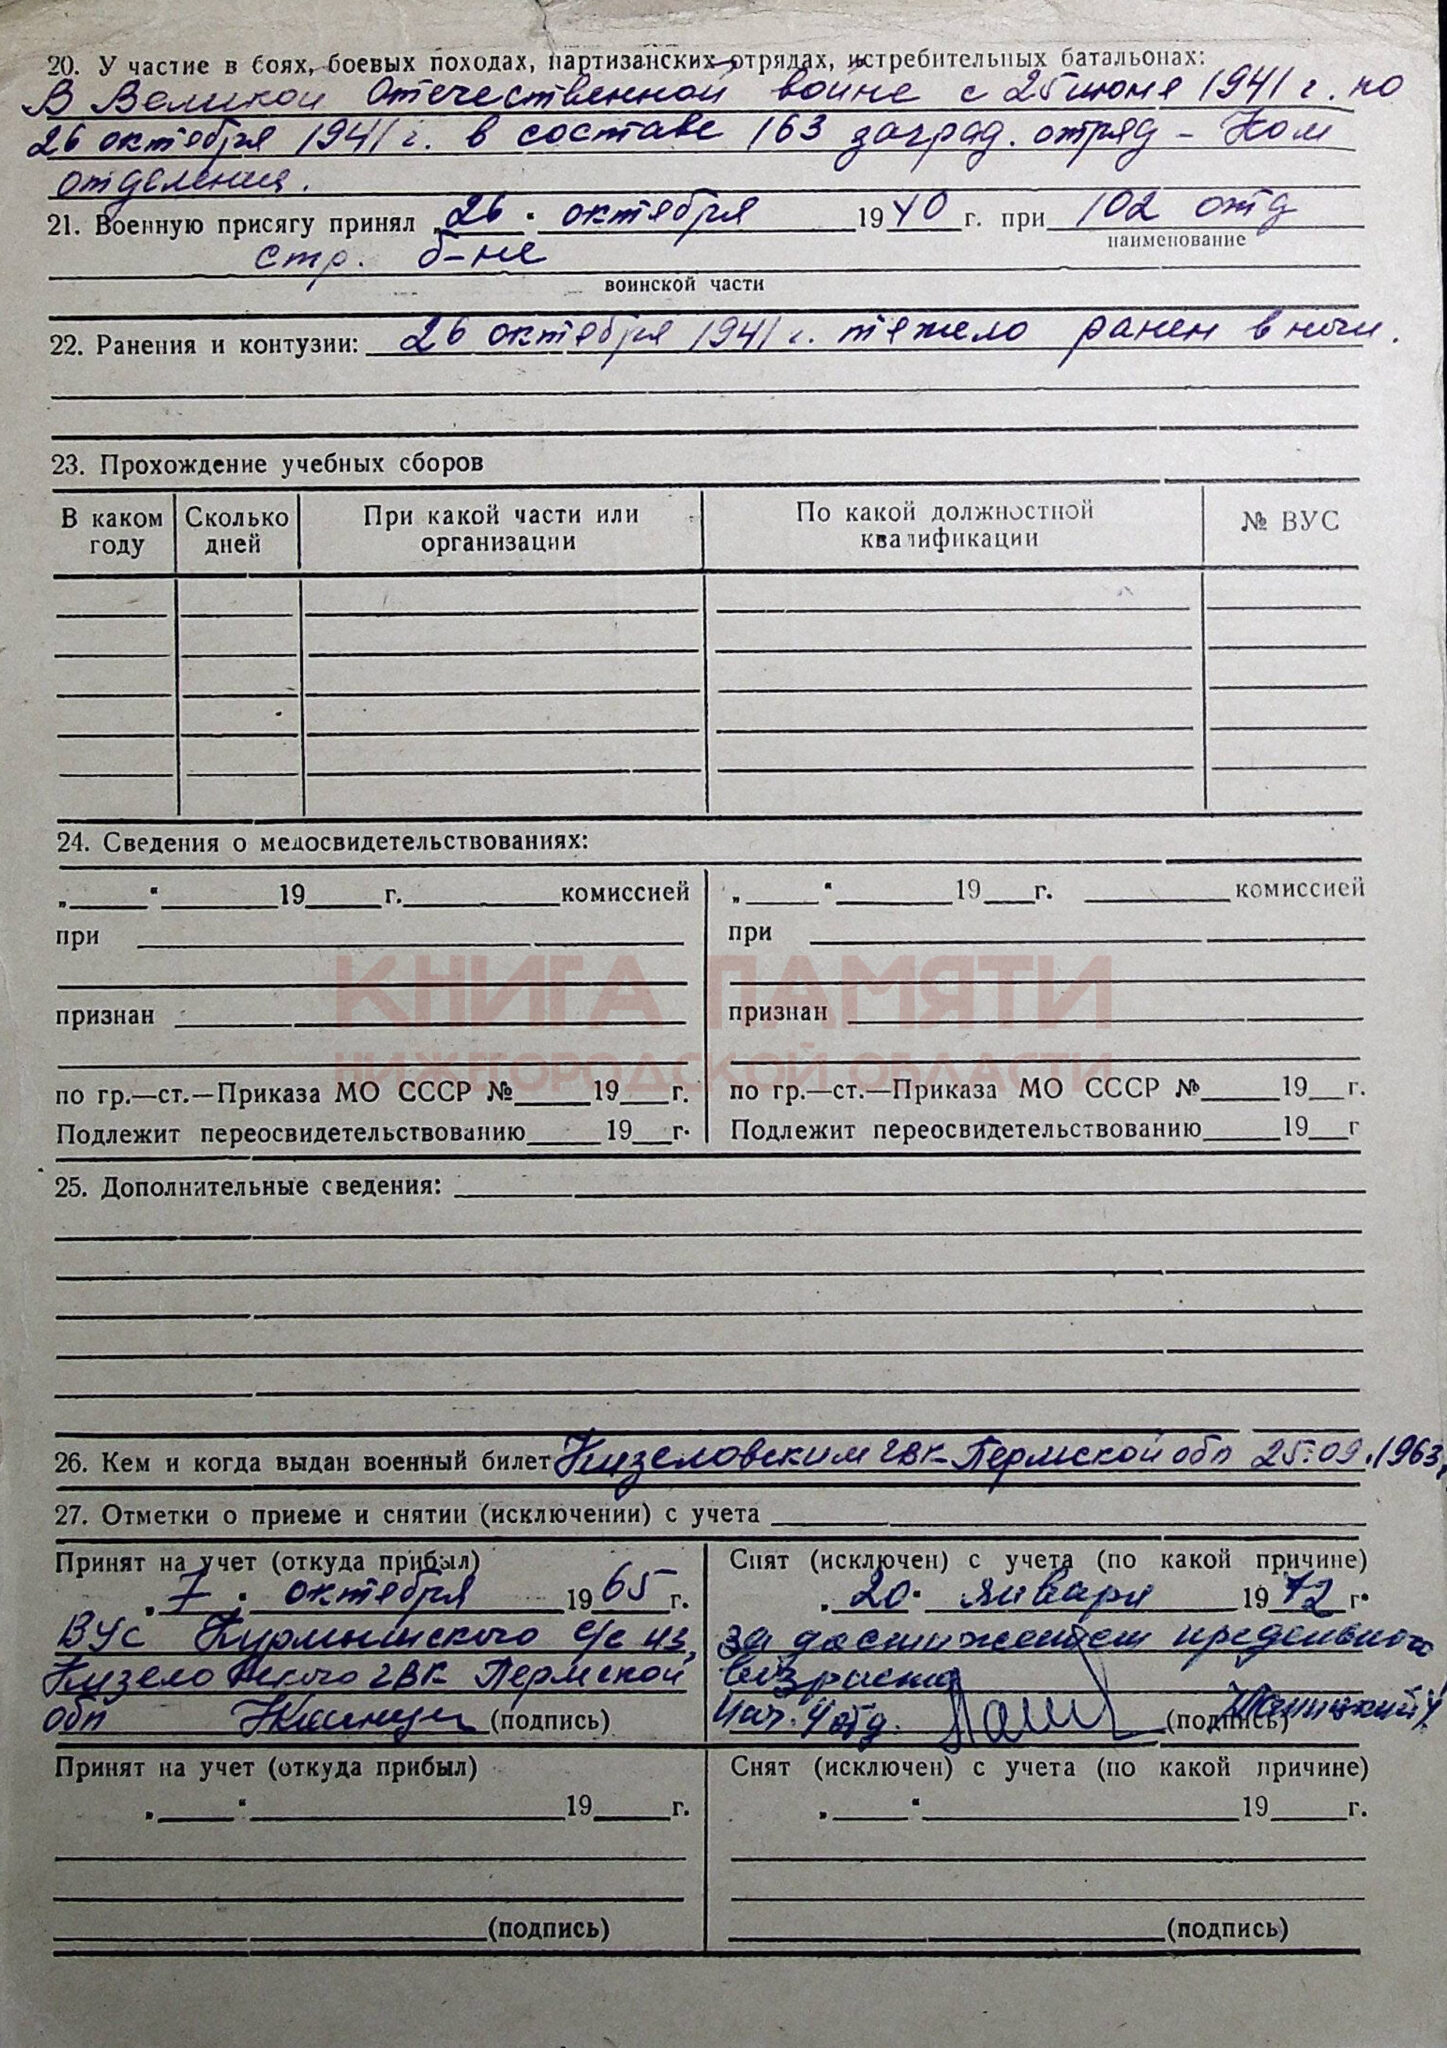 20. Участие в боях, боевых походах, партизанских отрядах, истребительных батальонах:
В Великой Отечественной войне с 25 июня 1941 г. по
26 октября 1941 г. в составе 163 заград. отряд - Ком
отделения.
21. Военную присягу принял „26" октября 1940 г. при 102 отд
наименование
стр. б-не
воинской части
22. Ранения и контузии: 26 октября 1941 г. тяжело ранен в ноги.
23. Прохождение учебных сборов
В каком году Сколько дней При какой части или организации По какой должностной квалификации № ВУС
24. Сведения о медосвидетельствованиях:
„ " 19 г. комиссией „ " 19 г. комиссией
при при
КНИГА ПАМЯТИ
признан признан
НИЖЕГОРОДСКОЙ ОБЛАСТИ
по гр.—ст.—Приказа МО СССР № 19 г. по гр.—ст.—Приказа МО СССР № 19 г.
Подлежит переосвидетельствованию 19 г. Подлежит переосвидетельствованию 19 г
25. Дополнительные сведения:
26. Кем и когда выдан военный билет Кизеловским ГВК Пермской обл 25.09.1963
27. Отметки о приеме и снятии (исключении) с учета
Принят на учет (откуда прибыл)
„7" октября 1965 г.
ВУС Курмышского с/с из
Кизеловского ГВК Пермской
обл (подпись)
Снят (исключен) с учета (по какой причине)
„20" января 1972 г.
за достижением предельного
возраста
Нач. 4 отд. (подпись)
Принят на учет (откуда прибыл) Снят (исключен) с учета (по какой причине)
„ " 19 г. „ " 19 г.
(подпись) (подпись)